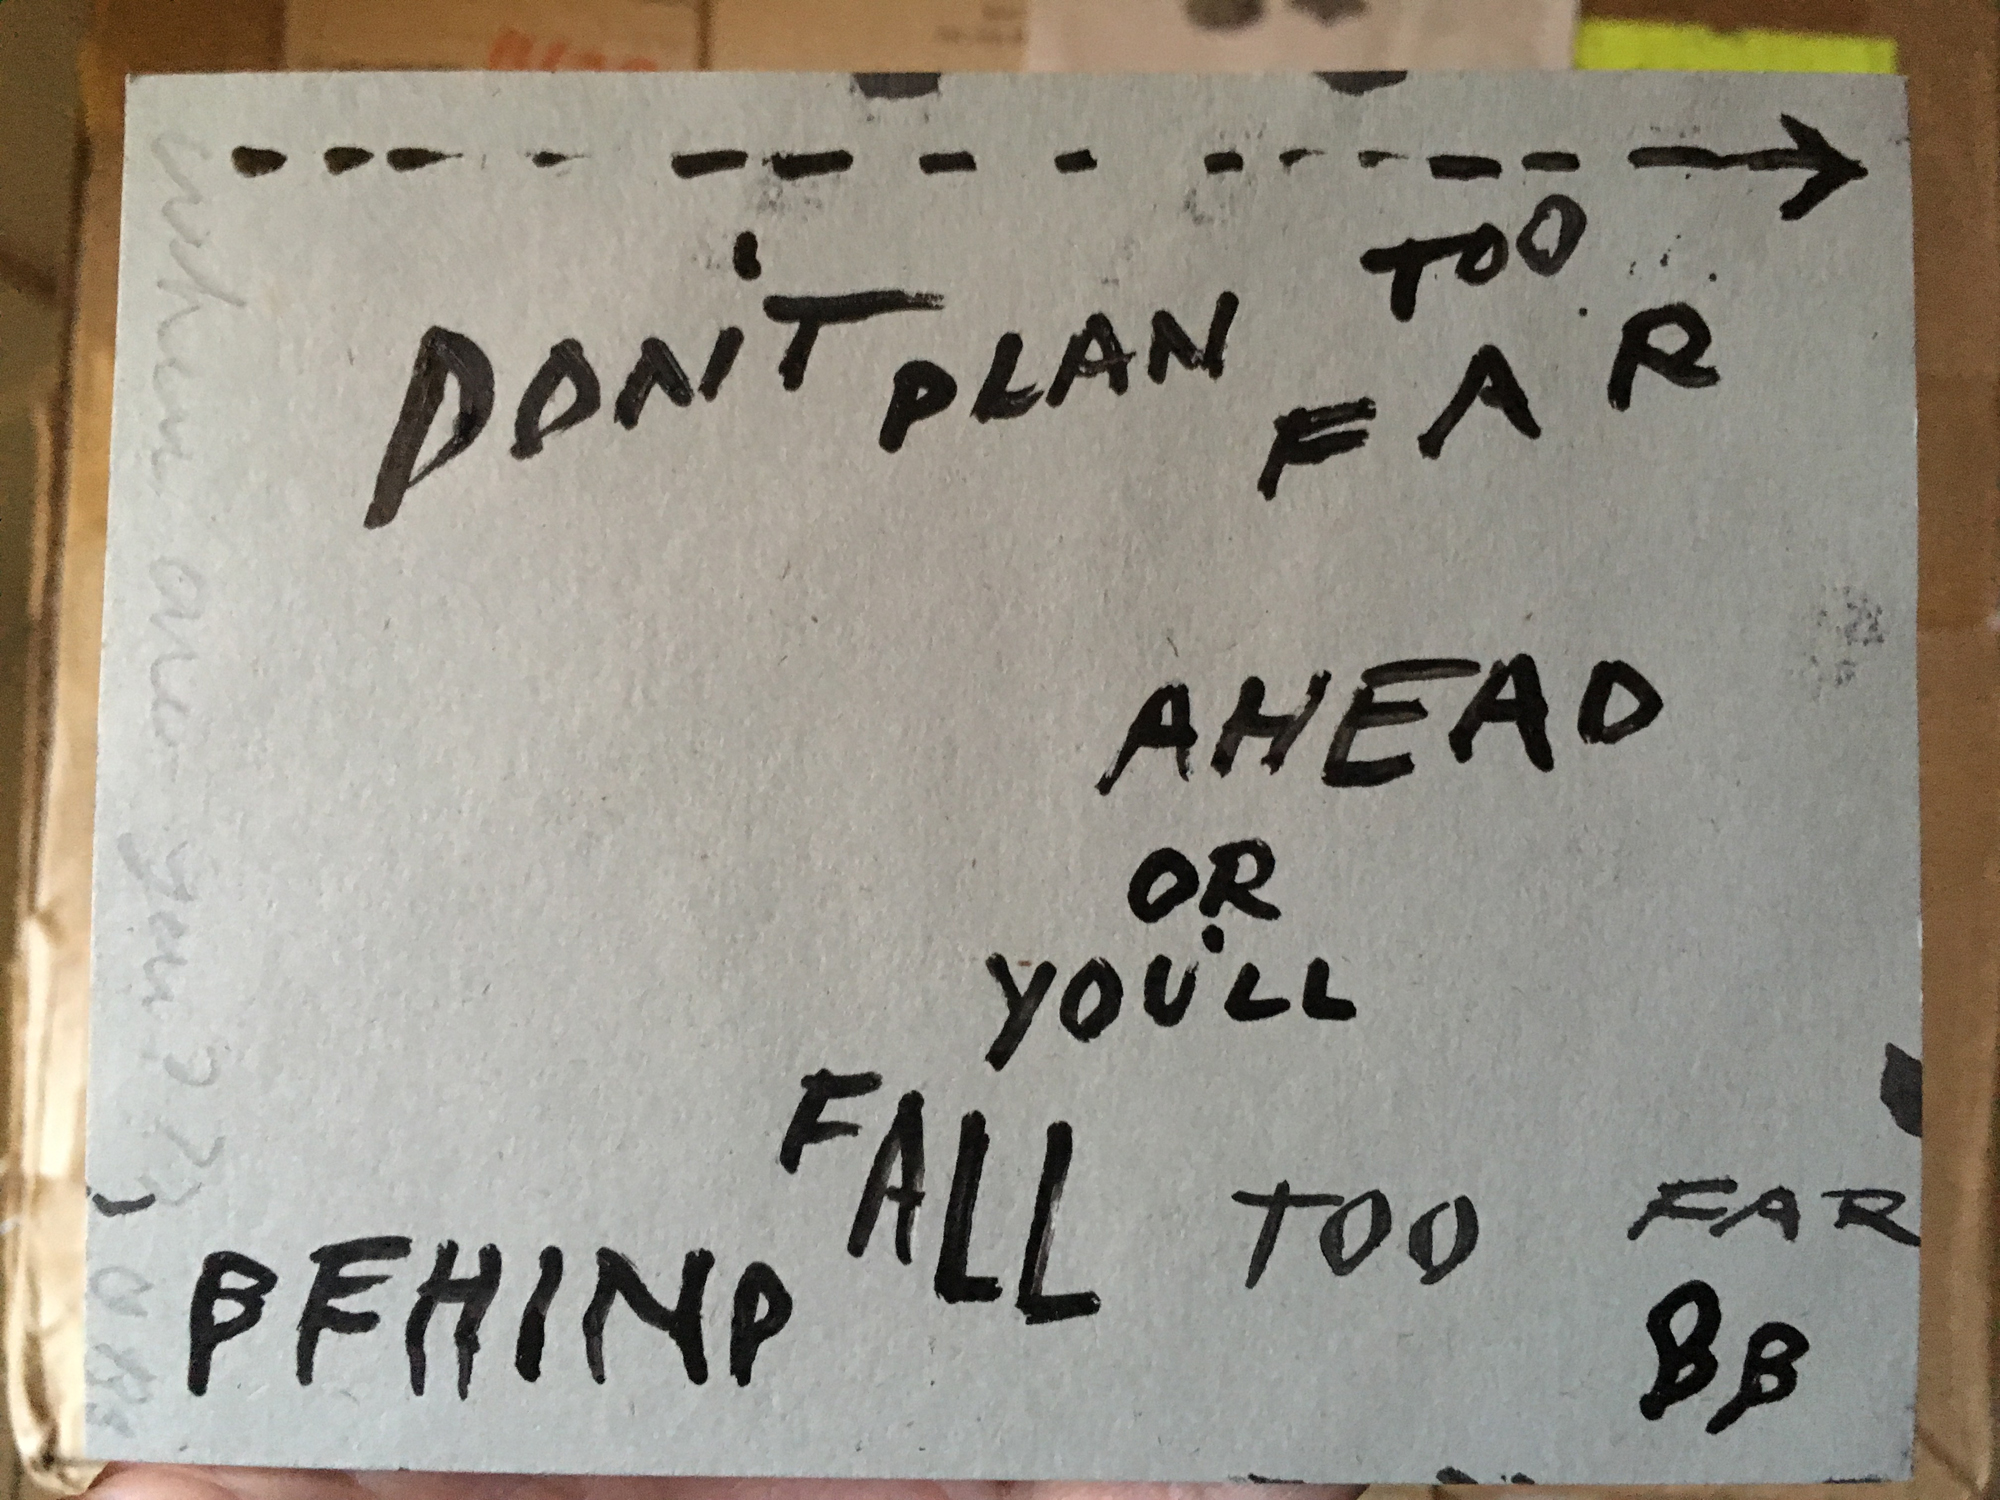 DON'T PLAN TOO
FAR
AHEAD
OR
YOU'LL
FALL TOO FAR
BEHIND
BB
when are you ???